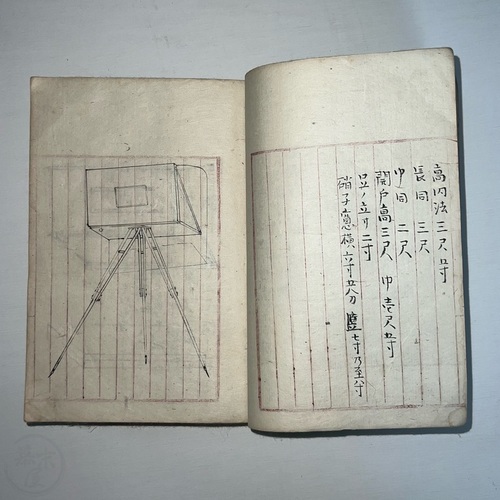 高内法 三尺五寸
長同 三尺
巾同 二尺
開戸高三尺 巾壱尺五寸
足ノ立リ 二寸
硝子窓横六寸五分 竪七寸乃至八寸